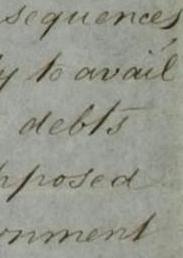 sequences
y to avail
debts
pposed
ornment